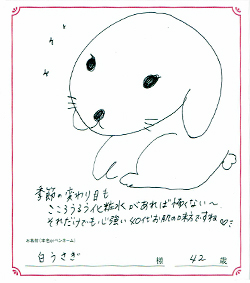 季節の変わり目も
こころうるう化粧水があれば怖くない〜
それだけでも心強い40代お肌の味方ですね♡
お名前(本名orペンネーム)
白うさぎ 様 42 歳